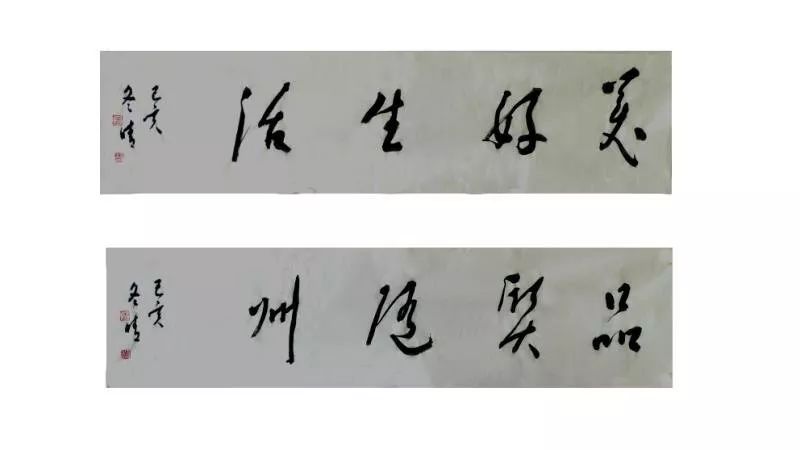 美好生活
己亥
冬晴
品质随州
己亥
冬晴